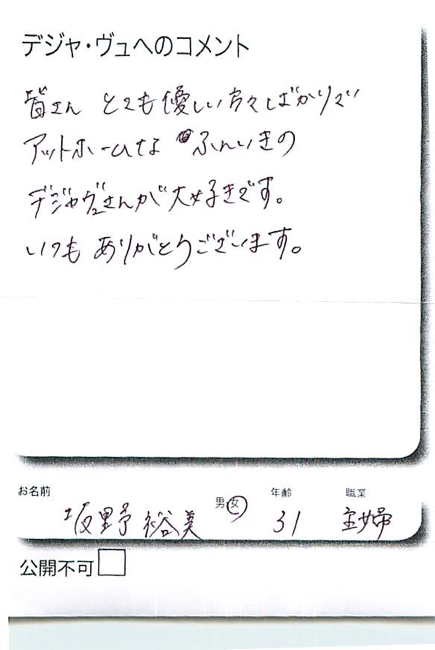 デジャ・ヴュへのコメント
皆さん とても優しい方々ばかりで
アットホームな ふんいきの
デジャヴュさんが大好きです。
いつも ありがとうございます。
お名前 男 女 年齢 職業
坂野 裕美 31 主婦
公開不可